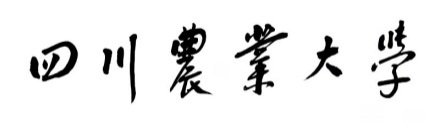 四川農業大學